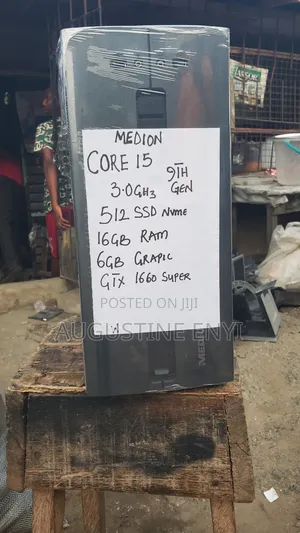 MEDION
CORE i5
9TH
GEN
3.0GH3
512 SSD NVME
16GB RAM
6GB GRAPIC
GTX 1660 SUPER
POSTED ON JIJI
AUGUSTINE ENYI
MEDION